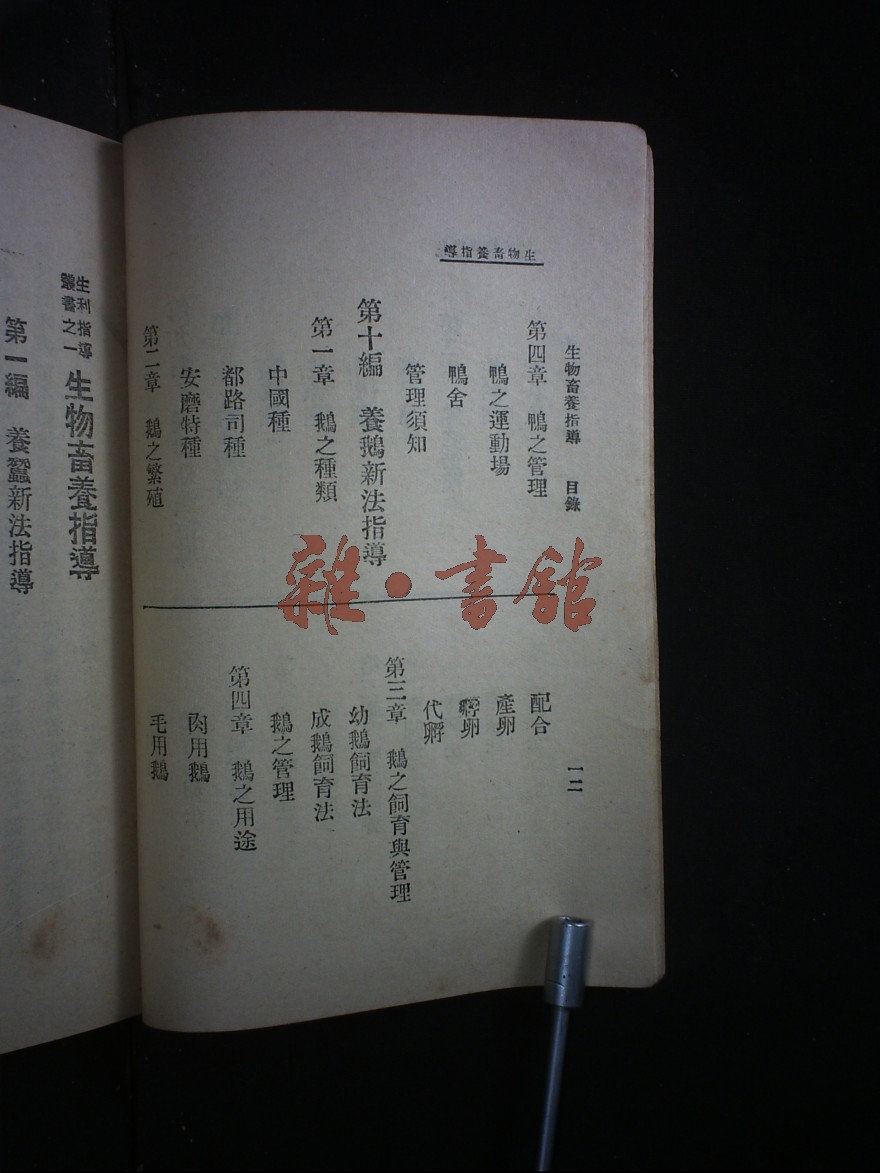 生物畜養指導
生物畜養指導　目錄
第四章　鴨之管理
鴨之運動場
鴨舍
管理須知
第十編　養鵝新法指導
第一章　鵝之種類
中國種
都路司種
安磨特種
第二章　鵝之繁殖
配合
產卵
孵卵
代孵
第三章　鵝之飼育與管理
幼鵝飼育法
成鵝飼育法
鵝之管理
第四章　鵝之用途
肉用鵝
毛用鵝
一二
生利指導
叢書之一
生物畜養指導
第一編　養蠶新法指導
雜·書館